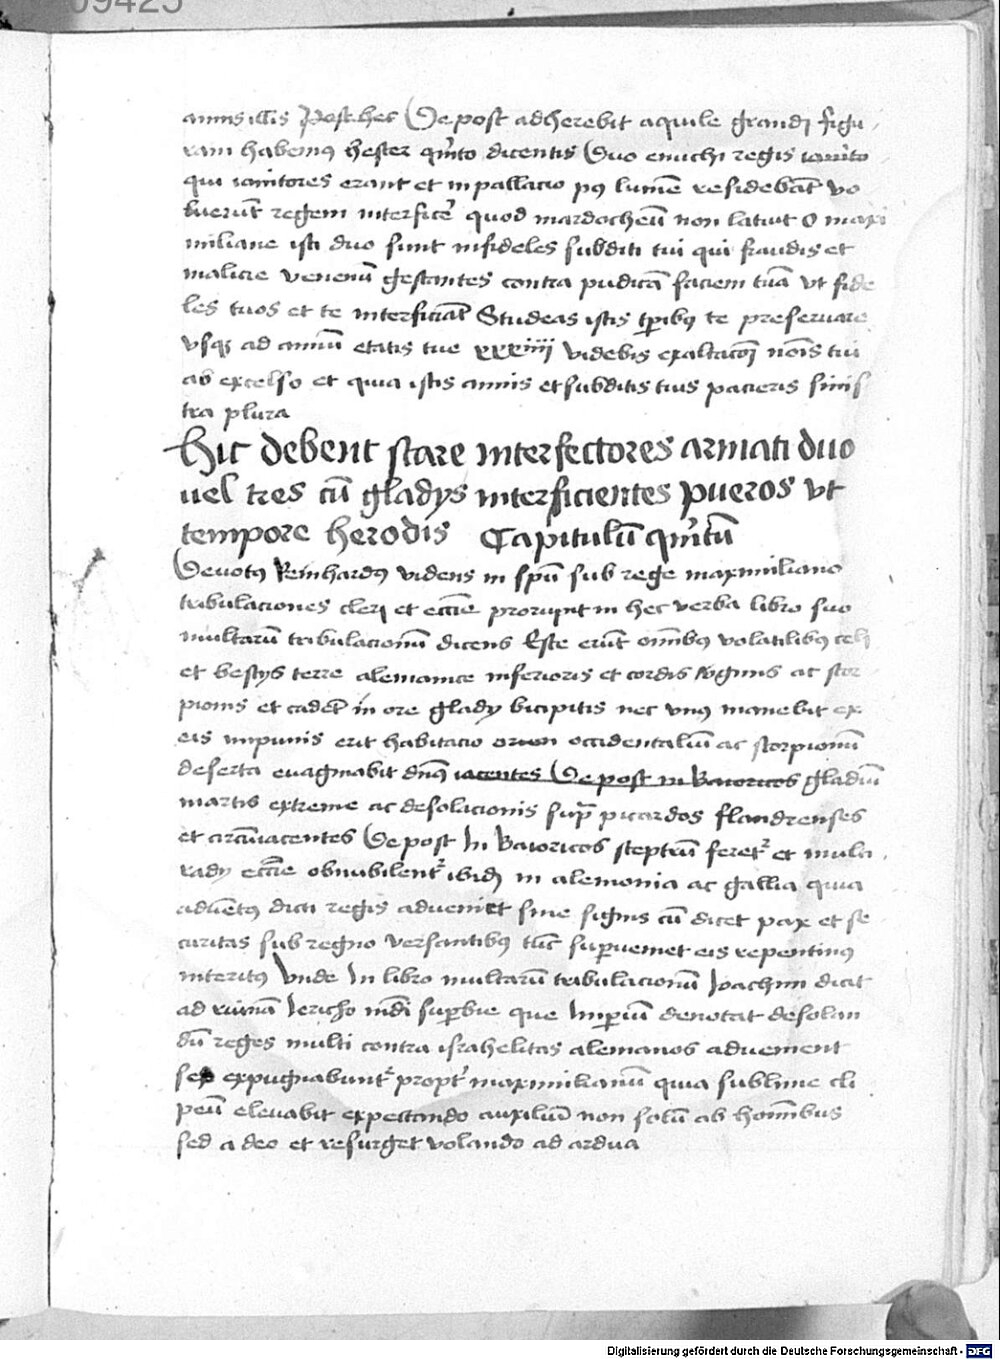 09425
annis illis Post hec De post adherebit aquile grandi figu
ram habemus hester qũto dicentis Duo enuchi regis
qui ianitores erant et in pallacio pꝰ lumẽ residebãt vo
luerũt regem interficẽ quod mardocheũ non latuit O maxi
miliane isti duo sunt infideles subditi tui qui fraudis et
malicie venenũ gestantes contra pudicã faciem tuã vt fide
les tuos et te interficiãt Studeas istis tꝑibꝰ te preseruare
vsqꝫ ad annũ etatis tue xxxiiij videbis exaltacõꝫ nõis tui
ab excelso et quia istis annis et subditis tuis pacieris sinis
tra plura
Hic debent stare interfectores armati duo
uel tres cũ gladijs interficientes pueros vt
tempore herodis Capitulũ qũtũ
Deuotꝰ Reinhardꝰ videns in spũ sub rege maximiliano
tribulaciones cleri et eccĩe prorupit in hec verba libro suo
multarũ tribulacionũ dicens Este erũt oĩnibꝰ volatilibꝰ celi
et bestijs terre alemanie inferioris et cordis ac scor
pionis et cadẽt in ore gladij bicipitis nec vnꝰ manebit ex
eis impunis erit habitacio occidentaliũ ac scorpionũ
deserta euaginabit dñꝰ iacentes De post in Bauoricos gladiũ
martis extreme ac desolacionis supᷓ picardos flandrenses
et circũiacentes De post In Bauoricos sceptrũ feretᷣ et mula
radij eccĩe obnubilentᷣ ibidꝫ in alemonia ac gallia quia
aduẽtꝰ dicti regis adueniet sine signis cũ dicet pax et se
curitas sub regno versantibꝰ tũc suꝑueniet eis repentinꝰ
interitꝰ Vnde In libro multarũ tribulacionũ Joachim dicit
ad ruinã Jericho mũdi suꝑbie que Imꝑiũ denotat desolan
dũ reges multi contra israhelitas alemanos aduenient
sed expugnabuntᷣ proptᷣ maximilianũ quia sublime cli
peũ eleuabit expectando auxiliũ non solũ ab hoĩnibus
sed a deo et resurget volando ad ardua
Digitalisierung gefördert durch die Deutsche Forschungsgemeinschaft - DFG